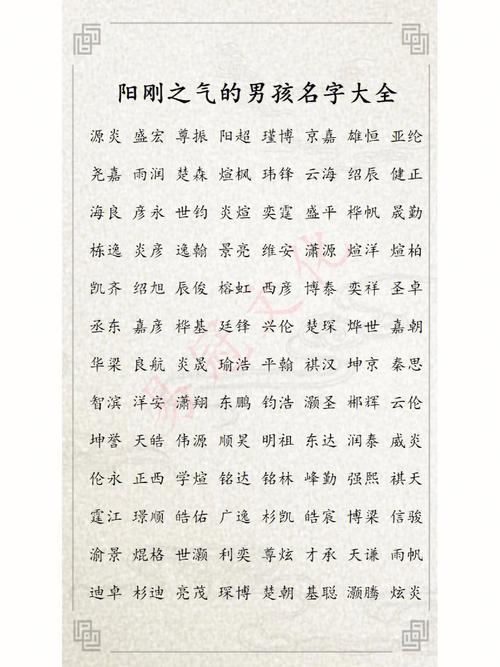 阳刚之气的男孩名字大全
源炎 盛宏 尊振 阳超 瑾博 京嘉 雄恒 亚纶
尧嘉 雨润 楚森 煊枫 玮锋 云海 绍辰 健正
海良 彦永 世钧 炎煊 奕霆 盛平 桦帆 晟勤
栋逸 炎彦 逸翰 景亮 维安 潇源 煊洋 煊柏
凯齐 绍旭 辰俊 榕虹 西彦 博泰 奕祥 圣卓
丞东 嘉彦 桦基 廷锋 兴伦 楚琛 烨世 嘉朝
华梁 良航 炎晟 瑜浩 平翰 祺汉 坤京 秦思
智滨 洋安 潇翔 东鹏 钧浩 灏圣 郴辉 云伦
坤誉 天皓 伟源 顺昊 明祖 东达 润泰 威炎
伦永 正西 学煊 铭达 铭林 峰勤 强熙 祺天
霆江 璟顺 皓佑 广逸 杉凯 皓宸 博梁 信骏
渝景 焜格 世灏 利奕 尊炫 才承 天谦 雨帆
迪卓 杉迪 亮茂 琛博 楚朝 基聪 灏腾 炫炎
易冠文化